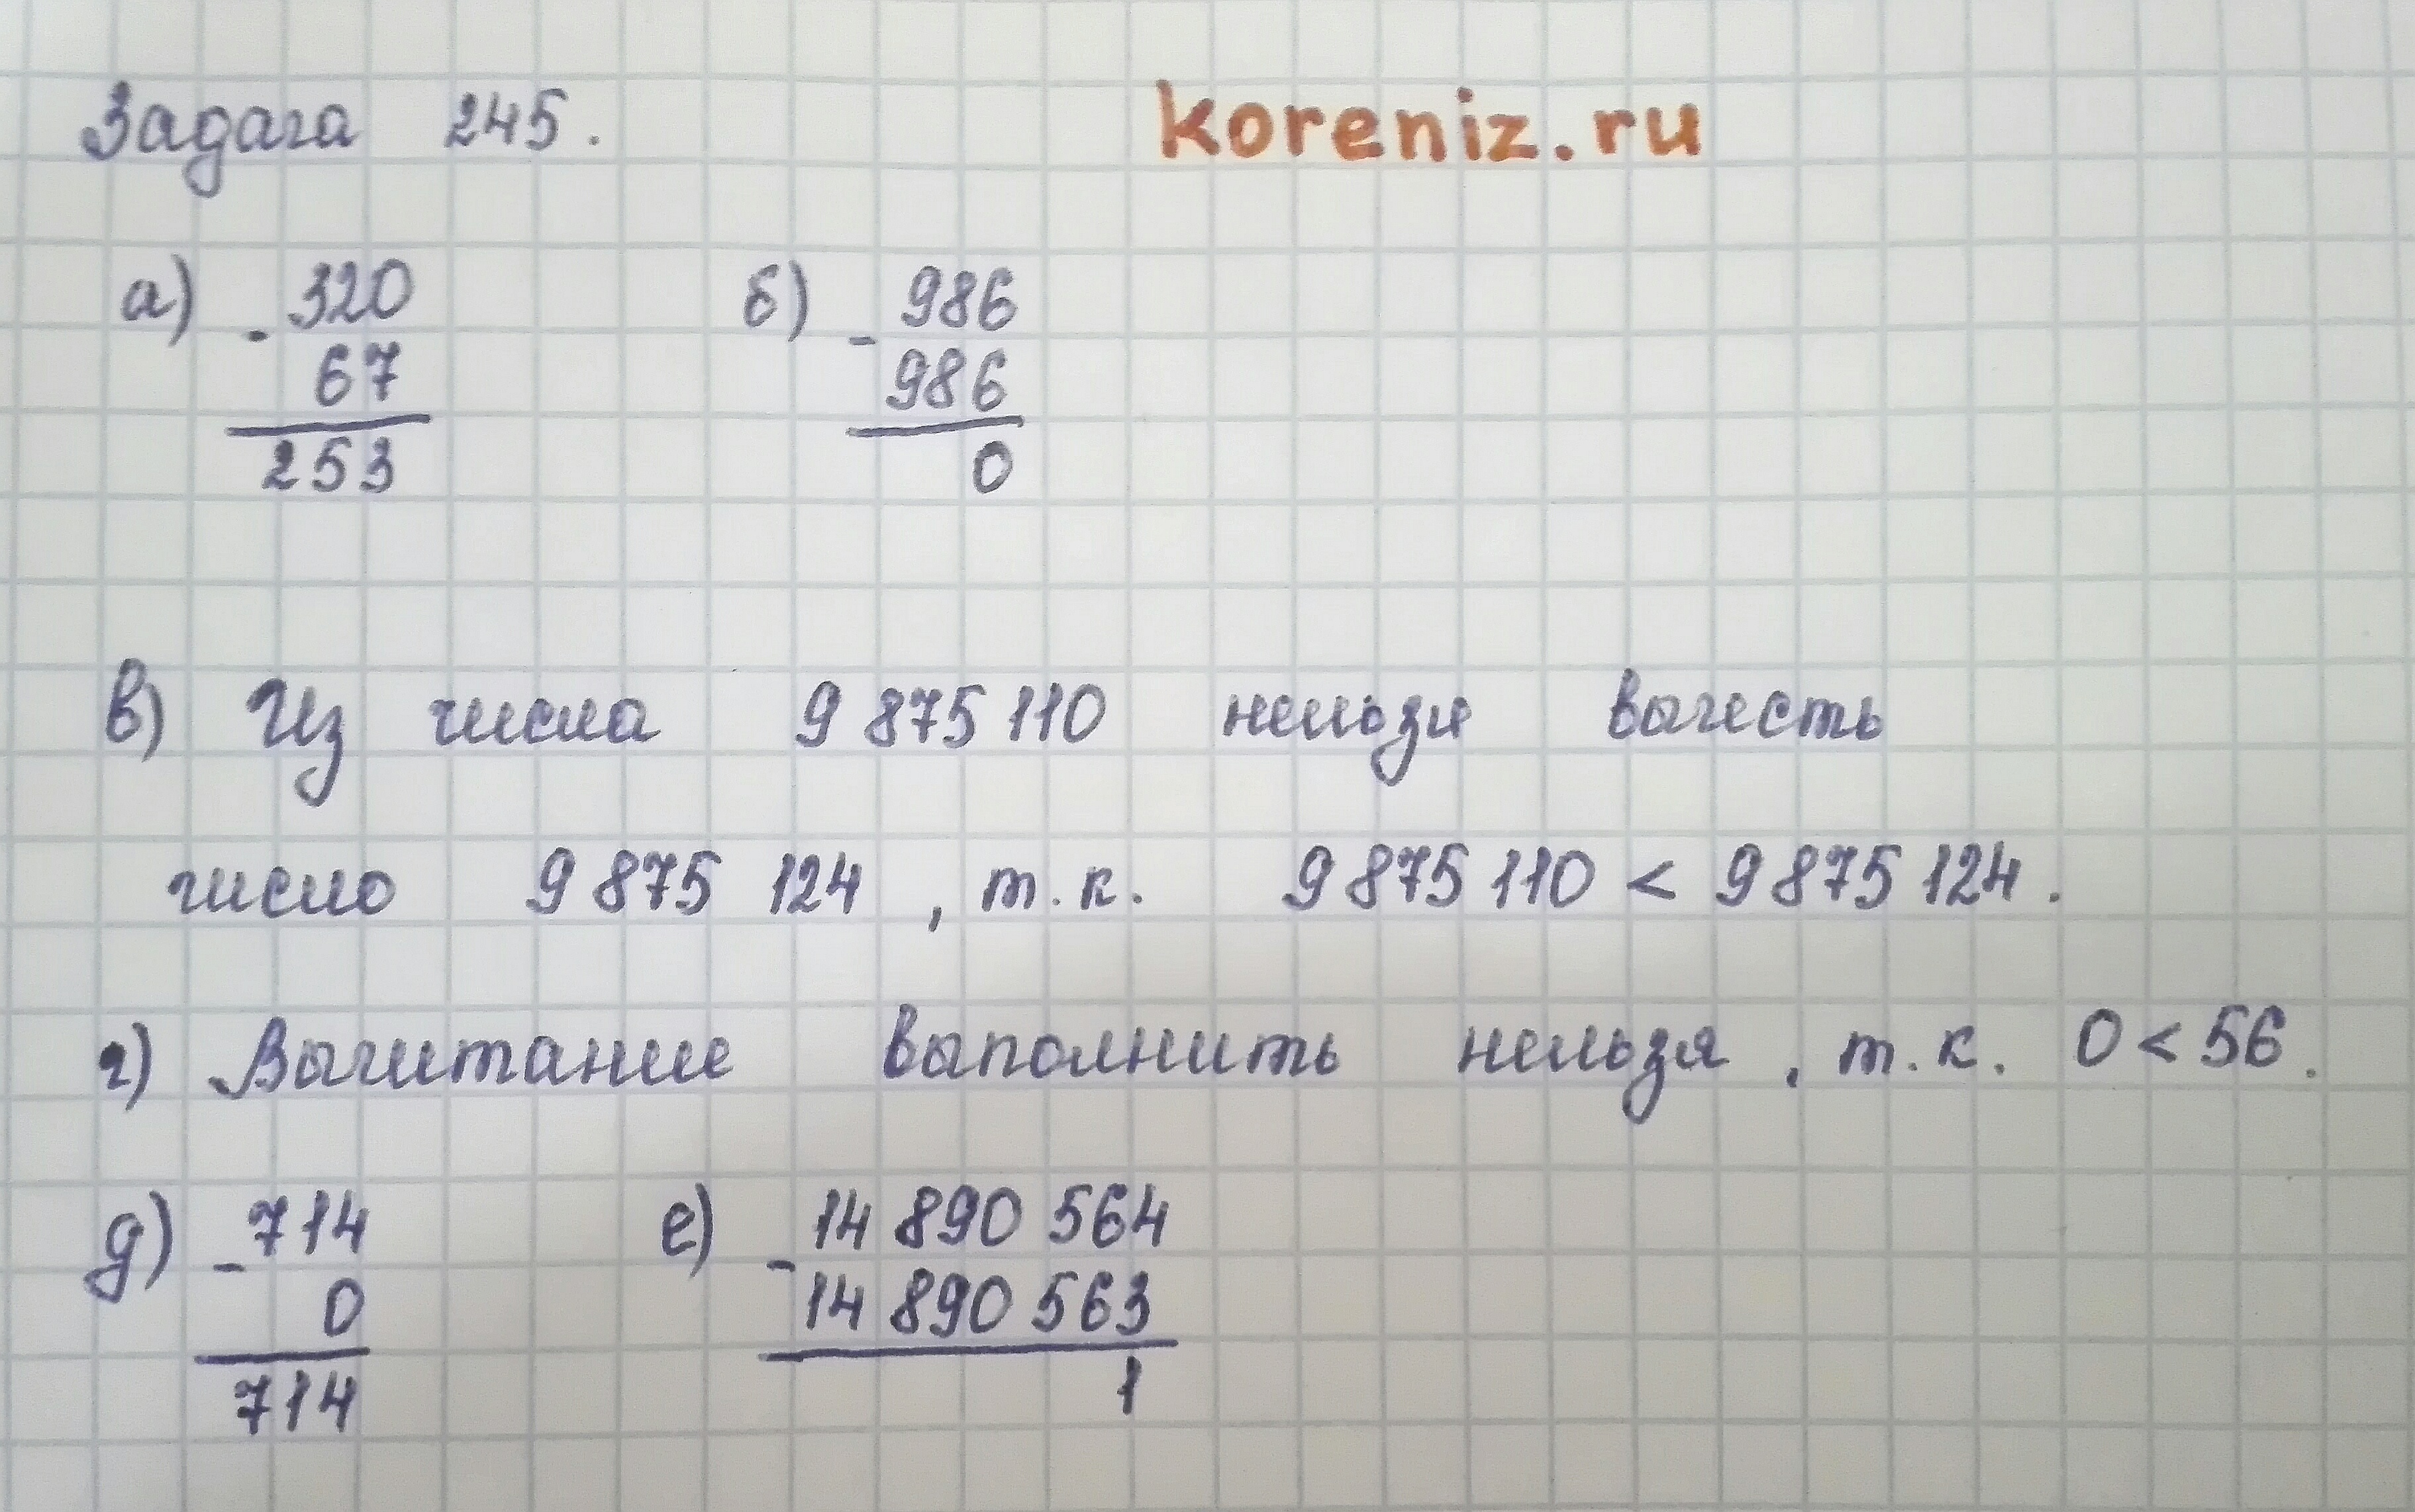 Задача 245.
koreniz.ru
а) - 320
67
253
б) - 986
986
0
в) Из числа 9 875 110 нельзя вычесть
число 9 875 124, т.к. 9 875 110 < 9 875 124.
г) Вычитание выполнить нельзя, т.к. 0 < 56.
д) - 714
0
714
е) - 14 890 564
14 890 563
1